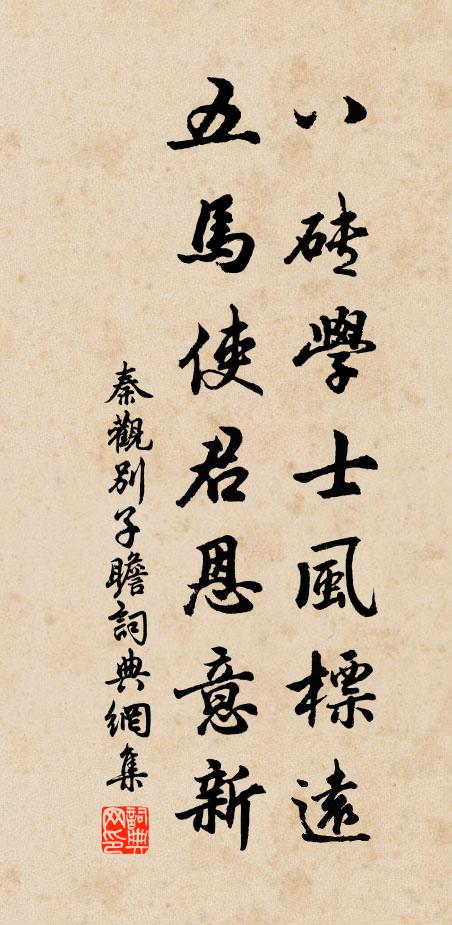 八磚學士風標遠
五馬使君恩意新
秦觀別子瞻詞典網集
詞典网印